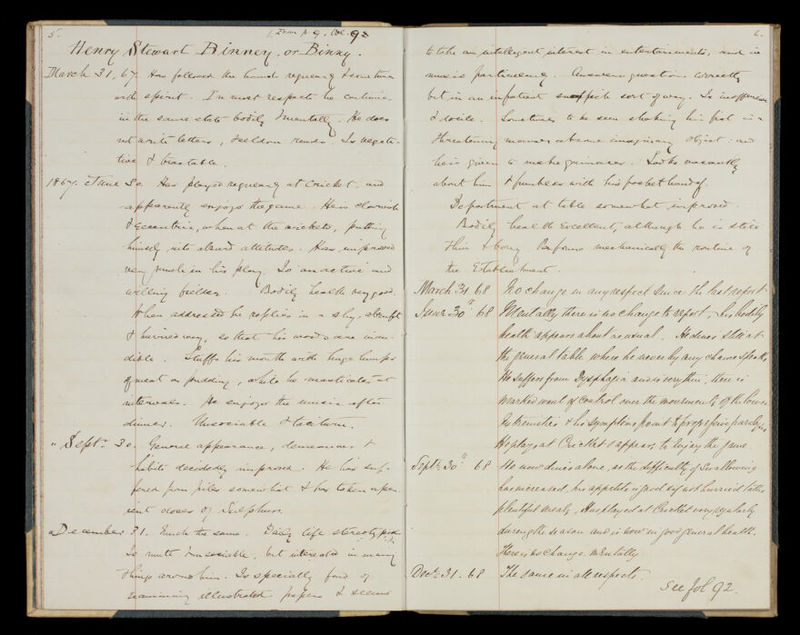 5.
From p. 9, Vol.
Henry Stewart Binney, or Binny.
March 31, 67. Has followed the usual regularity & routine
with spirit. In most respects he continues
in the same state bodily & mentally. He does
not write letters, & seldom reads. Is vegeta-
tive & tractable.
1867. June 30. Has played regularly at Cricket, and
apparently enjoys the game. He is clownish
& Eccentric, when at the wickets, putting
himself into absurd attitudes. Has improved
very much in his play. Is an active and
willing fielder. Bodily health very good.
When addressed he replies in a shy, abrupt
& hurried way, so that his words are inau-
dible. Stuffs his mouth with huge lumps
of meat or pudding, while he masticates at
intervals. He enjoys the music after
dinner. Unsociable & taciturn.
" Septr. 30. General appearance, demeanour &
habits decidedly improved. He has suf-
fered from piles somewhat & has taken
doses of Sulphur.
" December 31. Much the same. Daily life stereotyped.
Is mute & unsociable, but interested in many
things around him. Is specially fond of
examining illustrated papers & seems
6.
to take an intelligent interest in entertainments, and in
music particularly. Answers questions correctly
but in an impatient sort of way. Is inoffensive
& docile. Sometimes to be seen shaking his fist in a
threatening manner at some imaginary object: and
he is given to make grimaces. Looks vacantly
about him & fumbles with his pocket handf.
Deportment at table somewhat improved.
Bodily health Excellent, although he is still
thin & bony. Performs mechanically the routine of
the Establishment.
March 31 68 No change in any respect since the last report.
June 30th 68 Mentally there is no change to report, his bodily
health appears about as usual. He dines still at
the general table where he never by any chance speaks,
He suffers from Dysphagia and is very thin, there is
marked want of control over the movements of the lower
Extremities & his symptoms point to progressive paralysis
He plays at Cricket & appears to enjoy the game.
Septr. 30th 68 He now dines alone, as the difficulty of Swallowing
has increased, his appetite is good
plentiful meals. Has played at Cricket very regularly
during the season and is now in good general health.
There is no change mentally
Decr. 31. 68 The same in all respects.
See fol 92.